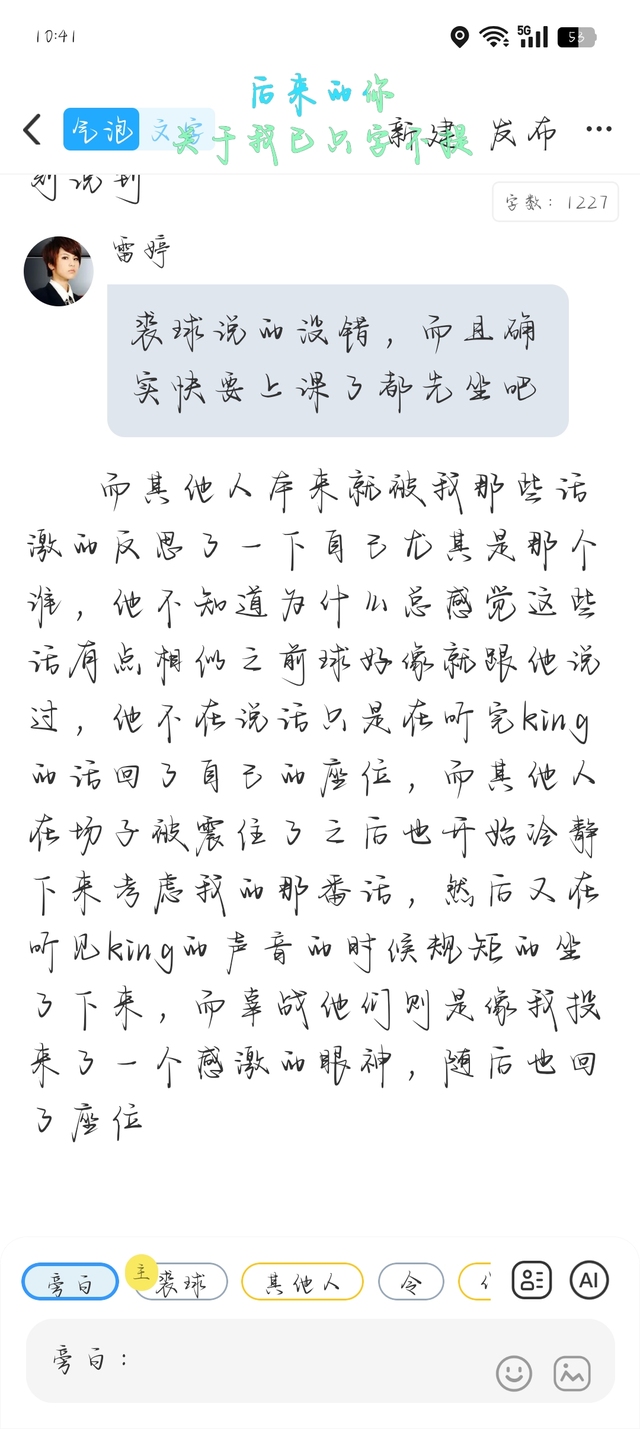 10:41
5G
53
后来的你
关于我已只字不提
气泡 文字 新建 发布
字数：1227
雷婷
裘球说的没错，而且确
实快要上课了都先坐吧
而其他人本来就被我那些话
激的反思了一下自己尤其是那个
谁，他不知道为什么总感觉这些
话有点相似之前球好像就跟他说
过，他不在说话只是在听完king
的话回了自己的座位，而其他人
在场子被震住了之后也开始冷静
下来考虑我的那番话，然后又在
听见king的声音的时候规矩的坐
了下来，而辜战他们则是像我投
来了一个感激的眼神，随后也回
了座位
旁白 主 裘球 其他人 令
AI
旁白：